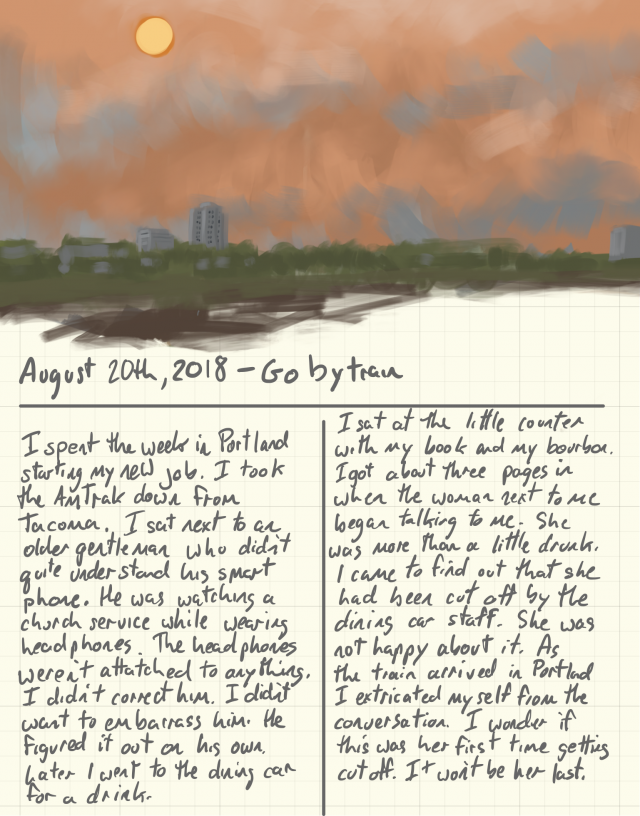 August 20th, 2018 - Go by train
I spent the week in Portland
starting my new job. I took
the AmTrak down from
Tacoma. I sat next to an
older gentleman who didn't
quite understand his smart
phone. He was watching a
church service while wearing
headphones. The headphones
weren't attatched to anything.
I didn't correct him. I didn't
want to embarrass him. He
figured it out on his own.
Later I went to the dining car
for a drink.
I sat at the little counter
with my book and my bourbon.
I got about three pages in
when the woman next to me
began talking to me. She
was more than a little drunk.
I came to find out that she
had been cut off by the
dining car staff. She was
not happy about it. As
the train arrived in Portlad
I extricated myself from the
conversation. I wonder if
this was her first time getting
cut off. It won't be her last.